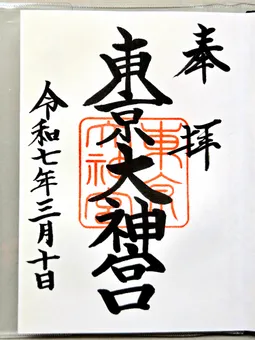 奉拝
東京大神宮
東京大神宮
令和七年三月十日